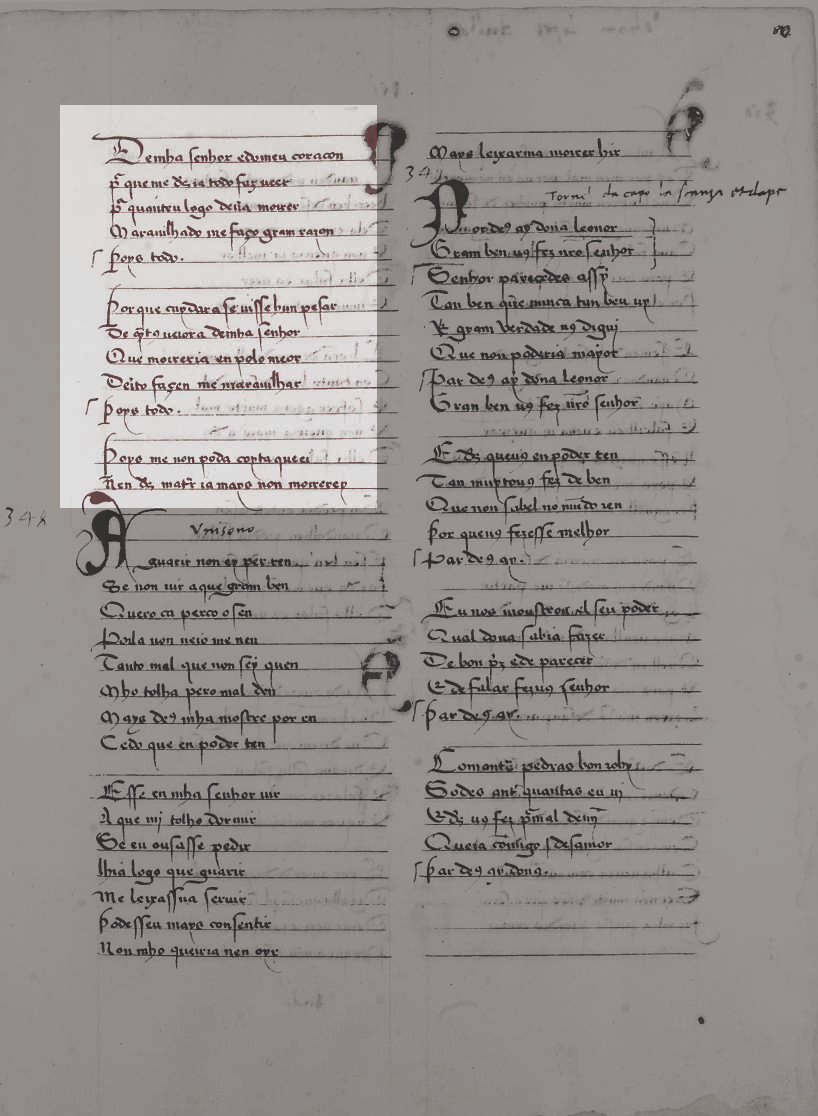 Demha senhor edomeu coraçon
ꝑ que me ds̄ ia todo faz veer
ꝑ quanteu logo deuia morrer
Marauilhado me faço gram razon
Poys todo.
Porque cuydara se uisse hun pesar
De qto ueiora demha senhor
Que morreria en polo meor
Deito façen me marauilhar
Poys todo.
Poys me non poda coyta queei
Nen ds̄ matr̄ ia mays non morrerey
348
Vnisono
A guarir non ey per ren
Se non uir aque gram ben
Quero ca perço o sen
Poila non ueio me nen
Tanto mal que non sey quen
Mho tolha pero mal den
Mays de9 mha mostre por en
Cedo que en poder ten
Esse en mha senhor uir
A que mj tolho dormir
Se eu ousasse pedir
lhia logo que guarir
Me leixassua seruir
Podesseu mays consentir
Non mho queiria nen oyr
Mays leyxarma morrer hir
349
Torna da capo la stanza
Por de9 ay dona leonor
Gram ben u9 fez nr̄o senhor
Senhor pareçedes assy
Tan ben que nunca tan ben uy
E gram verdade u9 digui
Que non poderia mayor
Par de9 ay dona leonor
Gran ben u9 fez nr̄o senhor
E ds̄ queu9 en poder ten
Tan muytou9 fez de ben
Que non sabel no mūdo ren
Por queu9 fezesse melhor
Par de9 ay.
En uos mostrou el seu poder
Qual dona sabia fazer
De bon prez ede pareçer
E de falar fezu9 senhor
Par de9 ay.
Comantr̄ pedras bon roby
Sodes antr̄ quantas eu ui
Eds̄ u9 fez pr̄mal demī
Queia cōmigo desamor
Par de9 ay dona.